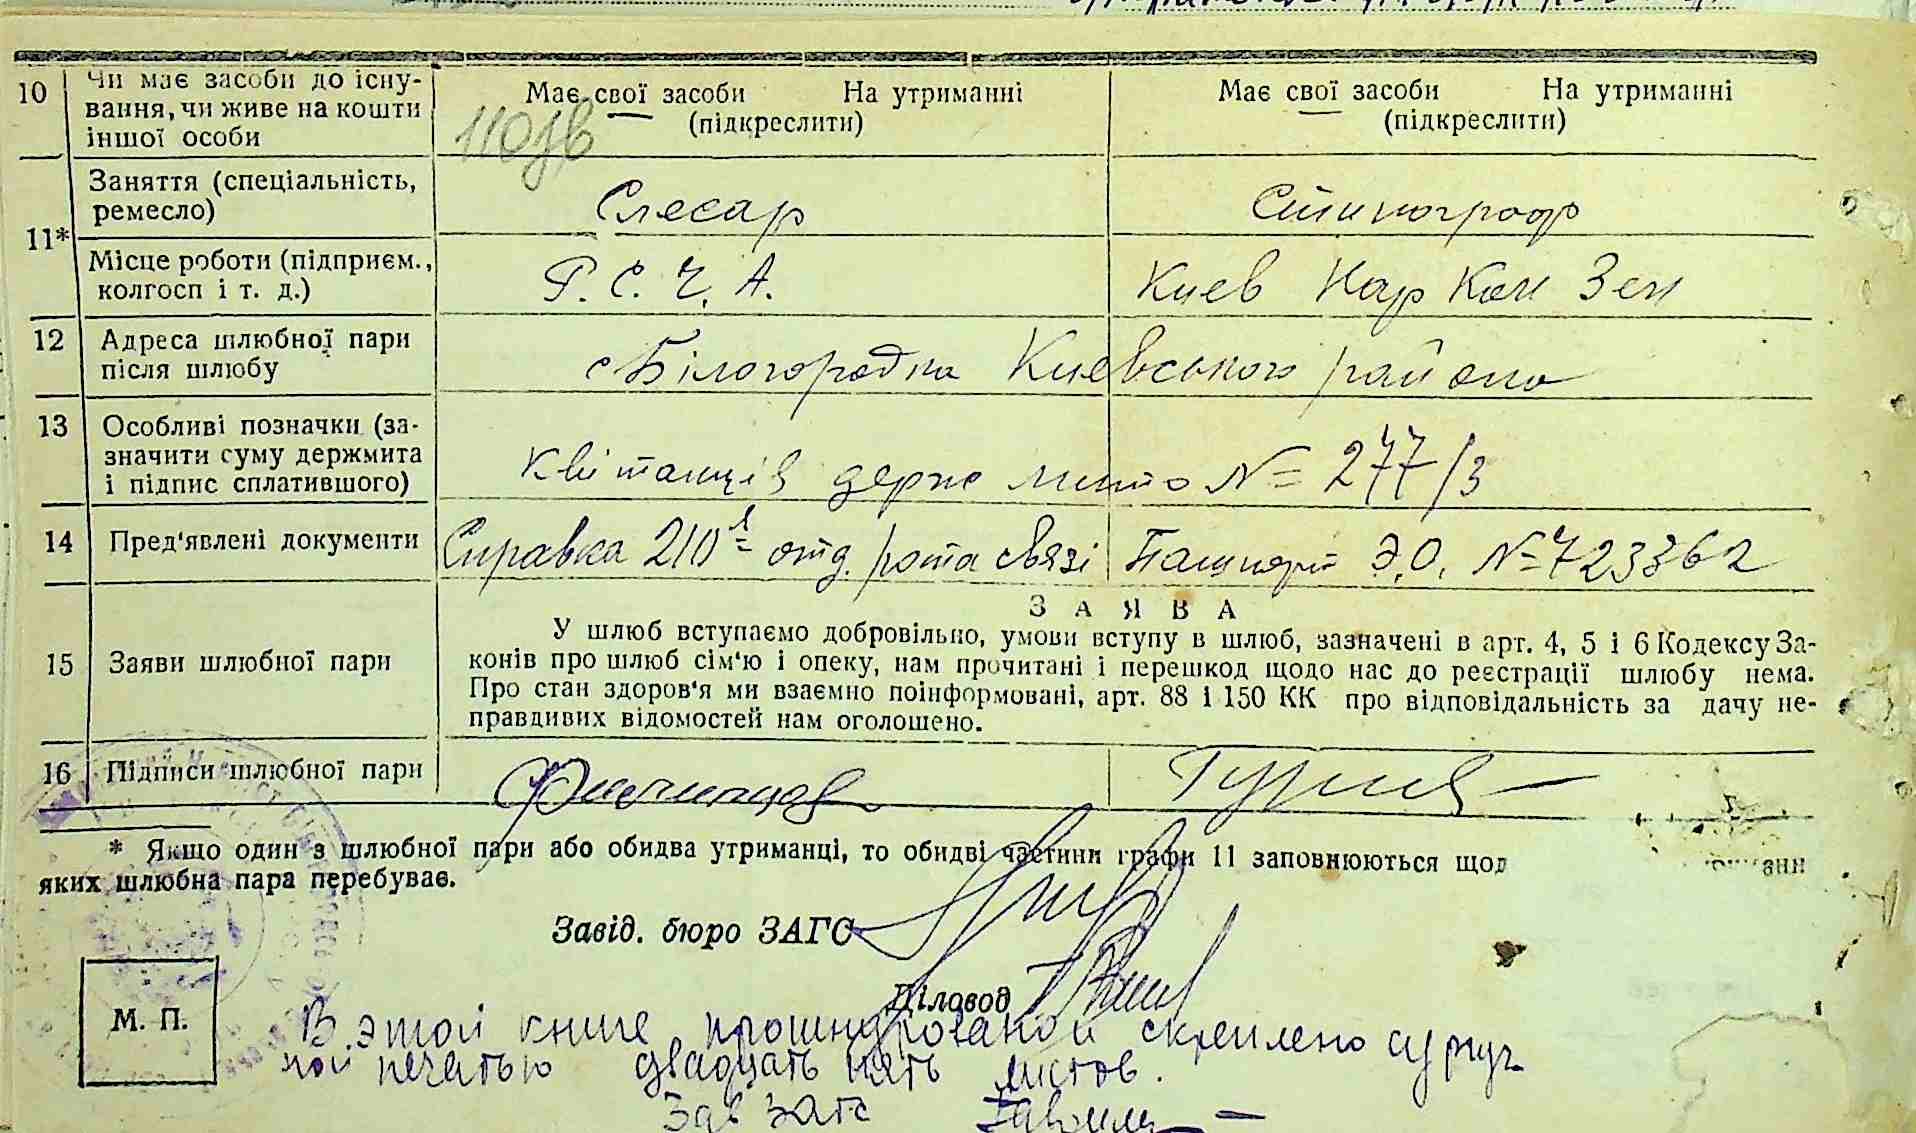 10 Чи має засоби до існу-
вання, чи живе на кошти
іншої особи
Має свої засоби На утриманні
(підкреслити)
Має свої засоби На утриманні
(підкреслити)
11*
Заняття (спеціальність,
ремесло)
Слесар
Стинограф
Місце роботи (підприєм.,
колгосп і т. д.)
Р. С. Ч. А.
Киев Нар Ком Зем
12 Адреса шлюбної пари
після шлюбу
с Білогородка Киевського району
13 Особливі позначки (за-
значити суму держмита
і підпис сплатившого)
держ мито № 277/3
14 Пред'явлені документи
Справка 210 отд. рота связі
Пашпорт Э.О. № 723362
15 Заяви шлюбної пари
ЗАЯВА
У шлюб вступаємо добровільно, умови вступу в шлюб, зазначені в арт. 4, 5 і 6 Кодексу За-
конів про шлюб сім'ю і опеку, нам прочитані і перешкод щодо нас до реєстрації шлюбу нема.
Про стан здоров'я ми взаємно поінформовані, арт. 88 і 150 КК про відповідальність за дачу не-
правдивих відомостей нам оголошено.
16 Підписи шлюбної пари
* Якщо один з шлюбної пари або обидва утриманці, то обидві частини графи 11 заповнюються щод
яких шлюбна пара перебуває.
Завід. бюро ЗАГС
Діловод
М. П.
В этой книге прошнурованой скреплено сургуч
ной печатью двадцать пять листов.
Зав Загс